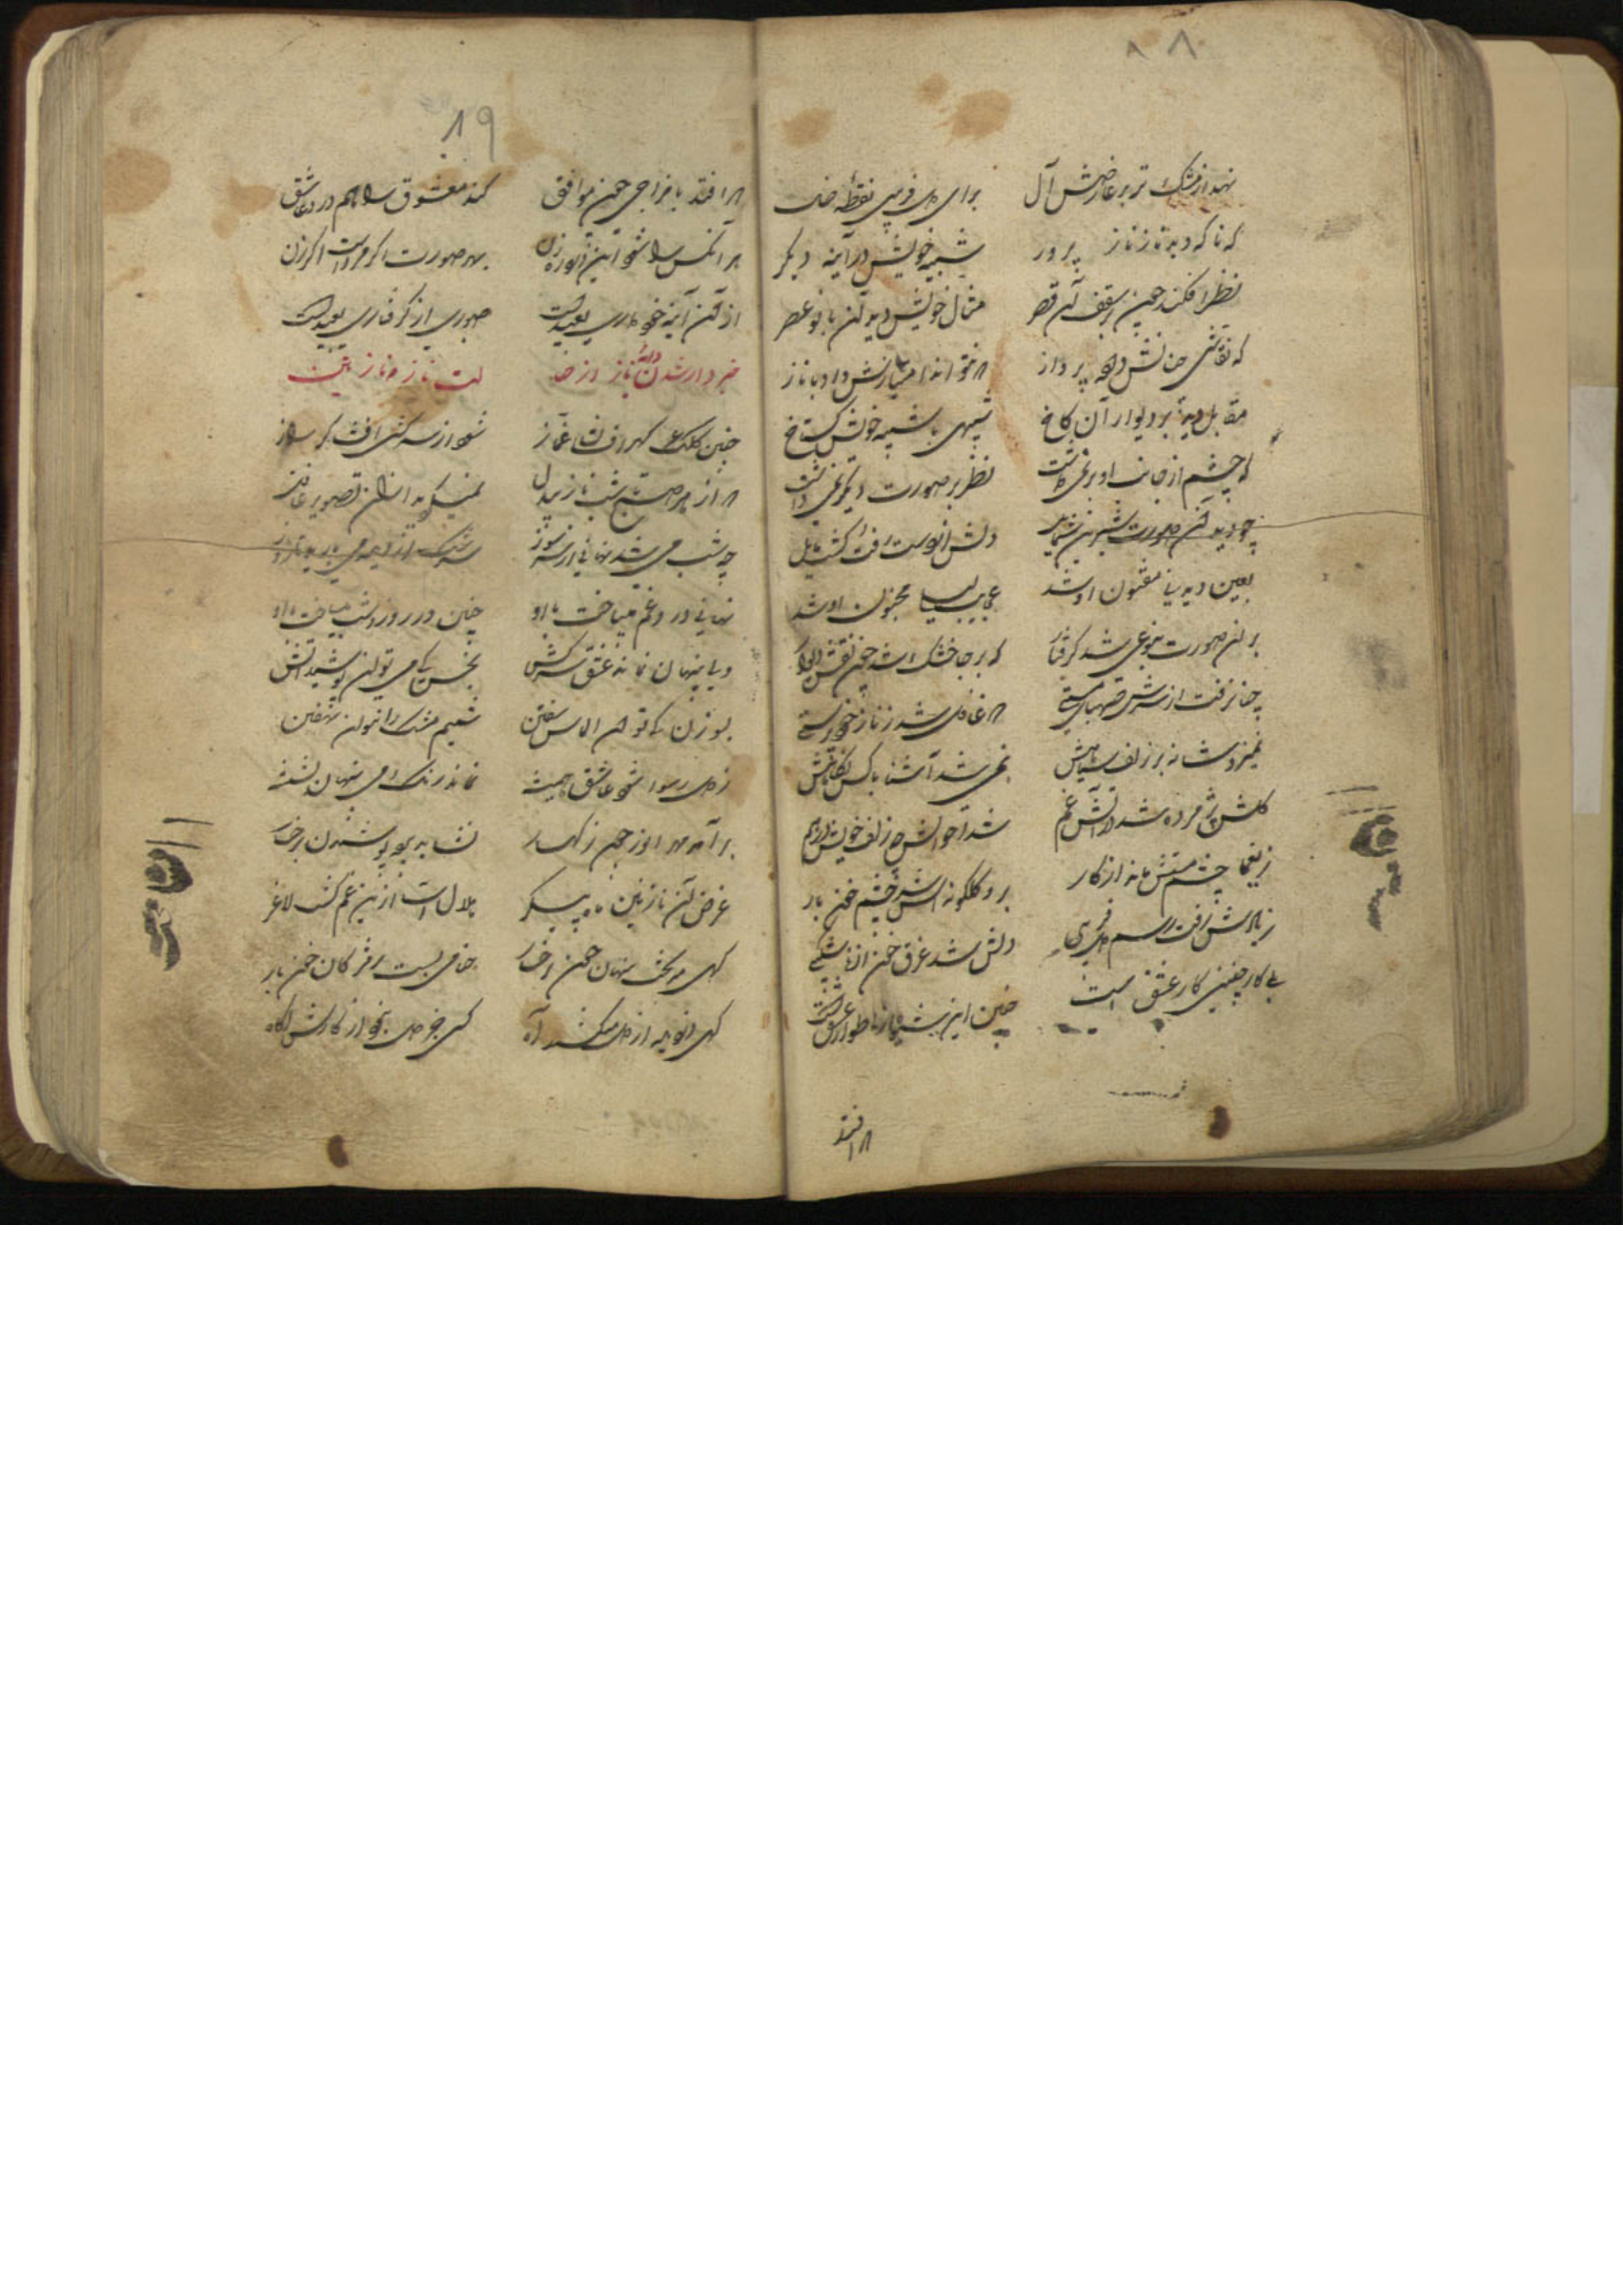 ۸۸
نهد از مشک تر بر عارضش آل برای دل فریبی نقطهٔ خال
که ناگه دید ناز ناز پرور شبیه خویش در آینه دیگر
نظر افکند چون بر سقف آن قصر مثال خویش دید آن بانو عصر
که نقاشی چنانش داده پرداز که نتواند امتیازش داد با ناز
مقابل دید بر دیوار آن کاخ شبیهی با شبیه خویش گستاخ
که چشم از جانب او برنمی داشت نظر بر صورت دیگر نمی داشت
چو دید آن صورت شیرین شمایل دلش از دست رفت و گشت مایل
بعین دید بینا مفتون او شد عجایب لیلیی مجنون او شد
بر آن صورت بنوعی شد گرفتار که بر جا خشک شد چون نقش دیوار
چنان رفت از سرش صهبای مستی که غافل شد ز ناز خودپرستی
نمیزد شانه بر زلف سیاهش نمی شد آشنا با کس نگاهش
گلش پژمرده شد از آتش غم شد احوالش چو زلف خویش درهم
ز یغما چشم مستش ماند از کار برو گلگونه اش شد چشم خون بار
ز یادش رفت رسم دلفریبی دلش شد غرق خون از ناشکیبی
بلی کار چنین کار عشق است چنین این شیوه از اطوار عشق است
که افتد
۸۹
که افتد با مزاجی چون موافق کند معشوق را هم درد عاشق
هر آنکس را شود آیین از و ره زن بهر صورت اگر مرد است اگر زن
از آن آینه خودداری بعید است صبوری از گرفتاری بعید است
خبردار شدن دایهٔ ناز از حالت ناز و ناز نین
چنین کلک گهر افشان غماز شود از سرکشی افشاگر راز
که از هر صبح تا شب ناز بیدل نمیگردید از آن تصویر غافل
چو شب می شد نهانی از سر سوز سرشک از دیده می بارید تا روز
نهانی درد و غم میساخت با او چنین در روز و شب میساخت با او
ولی پنهان نماند عشق سرکش بخس کی می توان پوشید آتش
بسوزن کی توان الماس سفتن شمیم مشک را نتوان نهفتن
ز دل رسوا شود عاشق همیشه نماند رنگ می پنهان بشیشه
بر آمد مهر انور چون ز کهسار نشاید بر وی پوشیدن رخسار
غرض آن نازنین ماه پیکر هلال است از این غم گشت لاغر
گهی میگفت پنهان چون رخسار حنا می بست مژگان خون بار
گهی دزدیده از دل میکشید آه کسی جز دل نبود از کارش آگاه